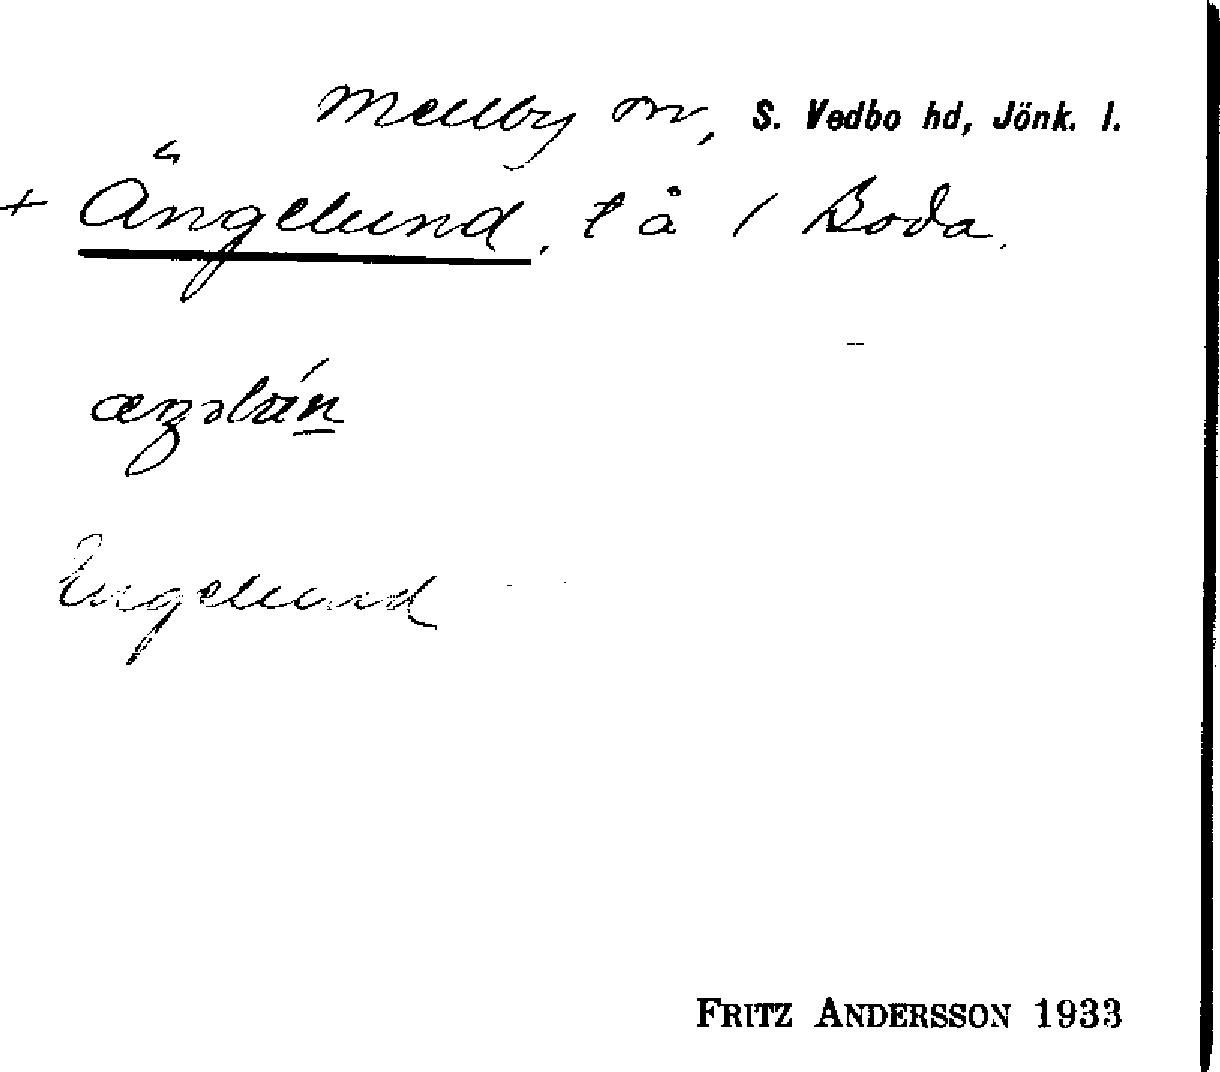 Mellby sn, S. Vedbo hd, Jönk. l.
+ Ängelund, t å / Boda.
Engelund
FRITZ ANDERSSON 1933